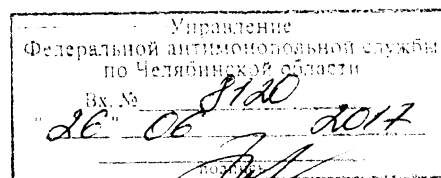 Управление
Федеральной антимонопольной службы
по Челябинской области
Вх. № 8120
"26" 06 2017
подпись